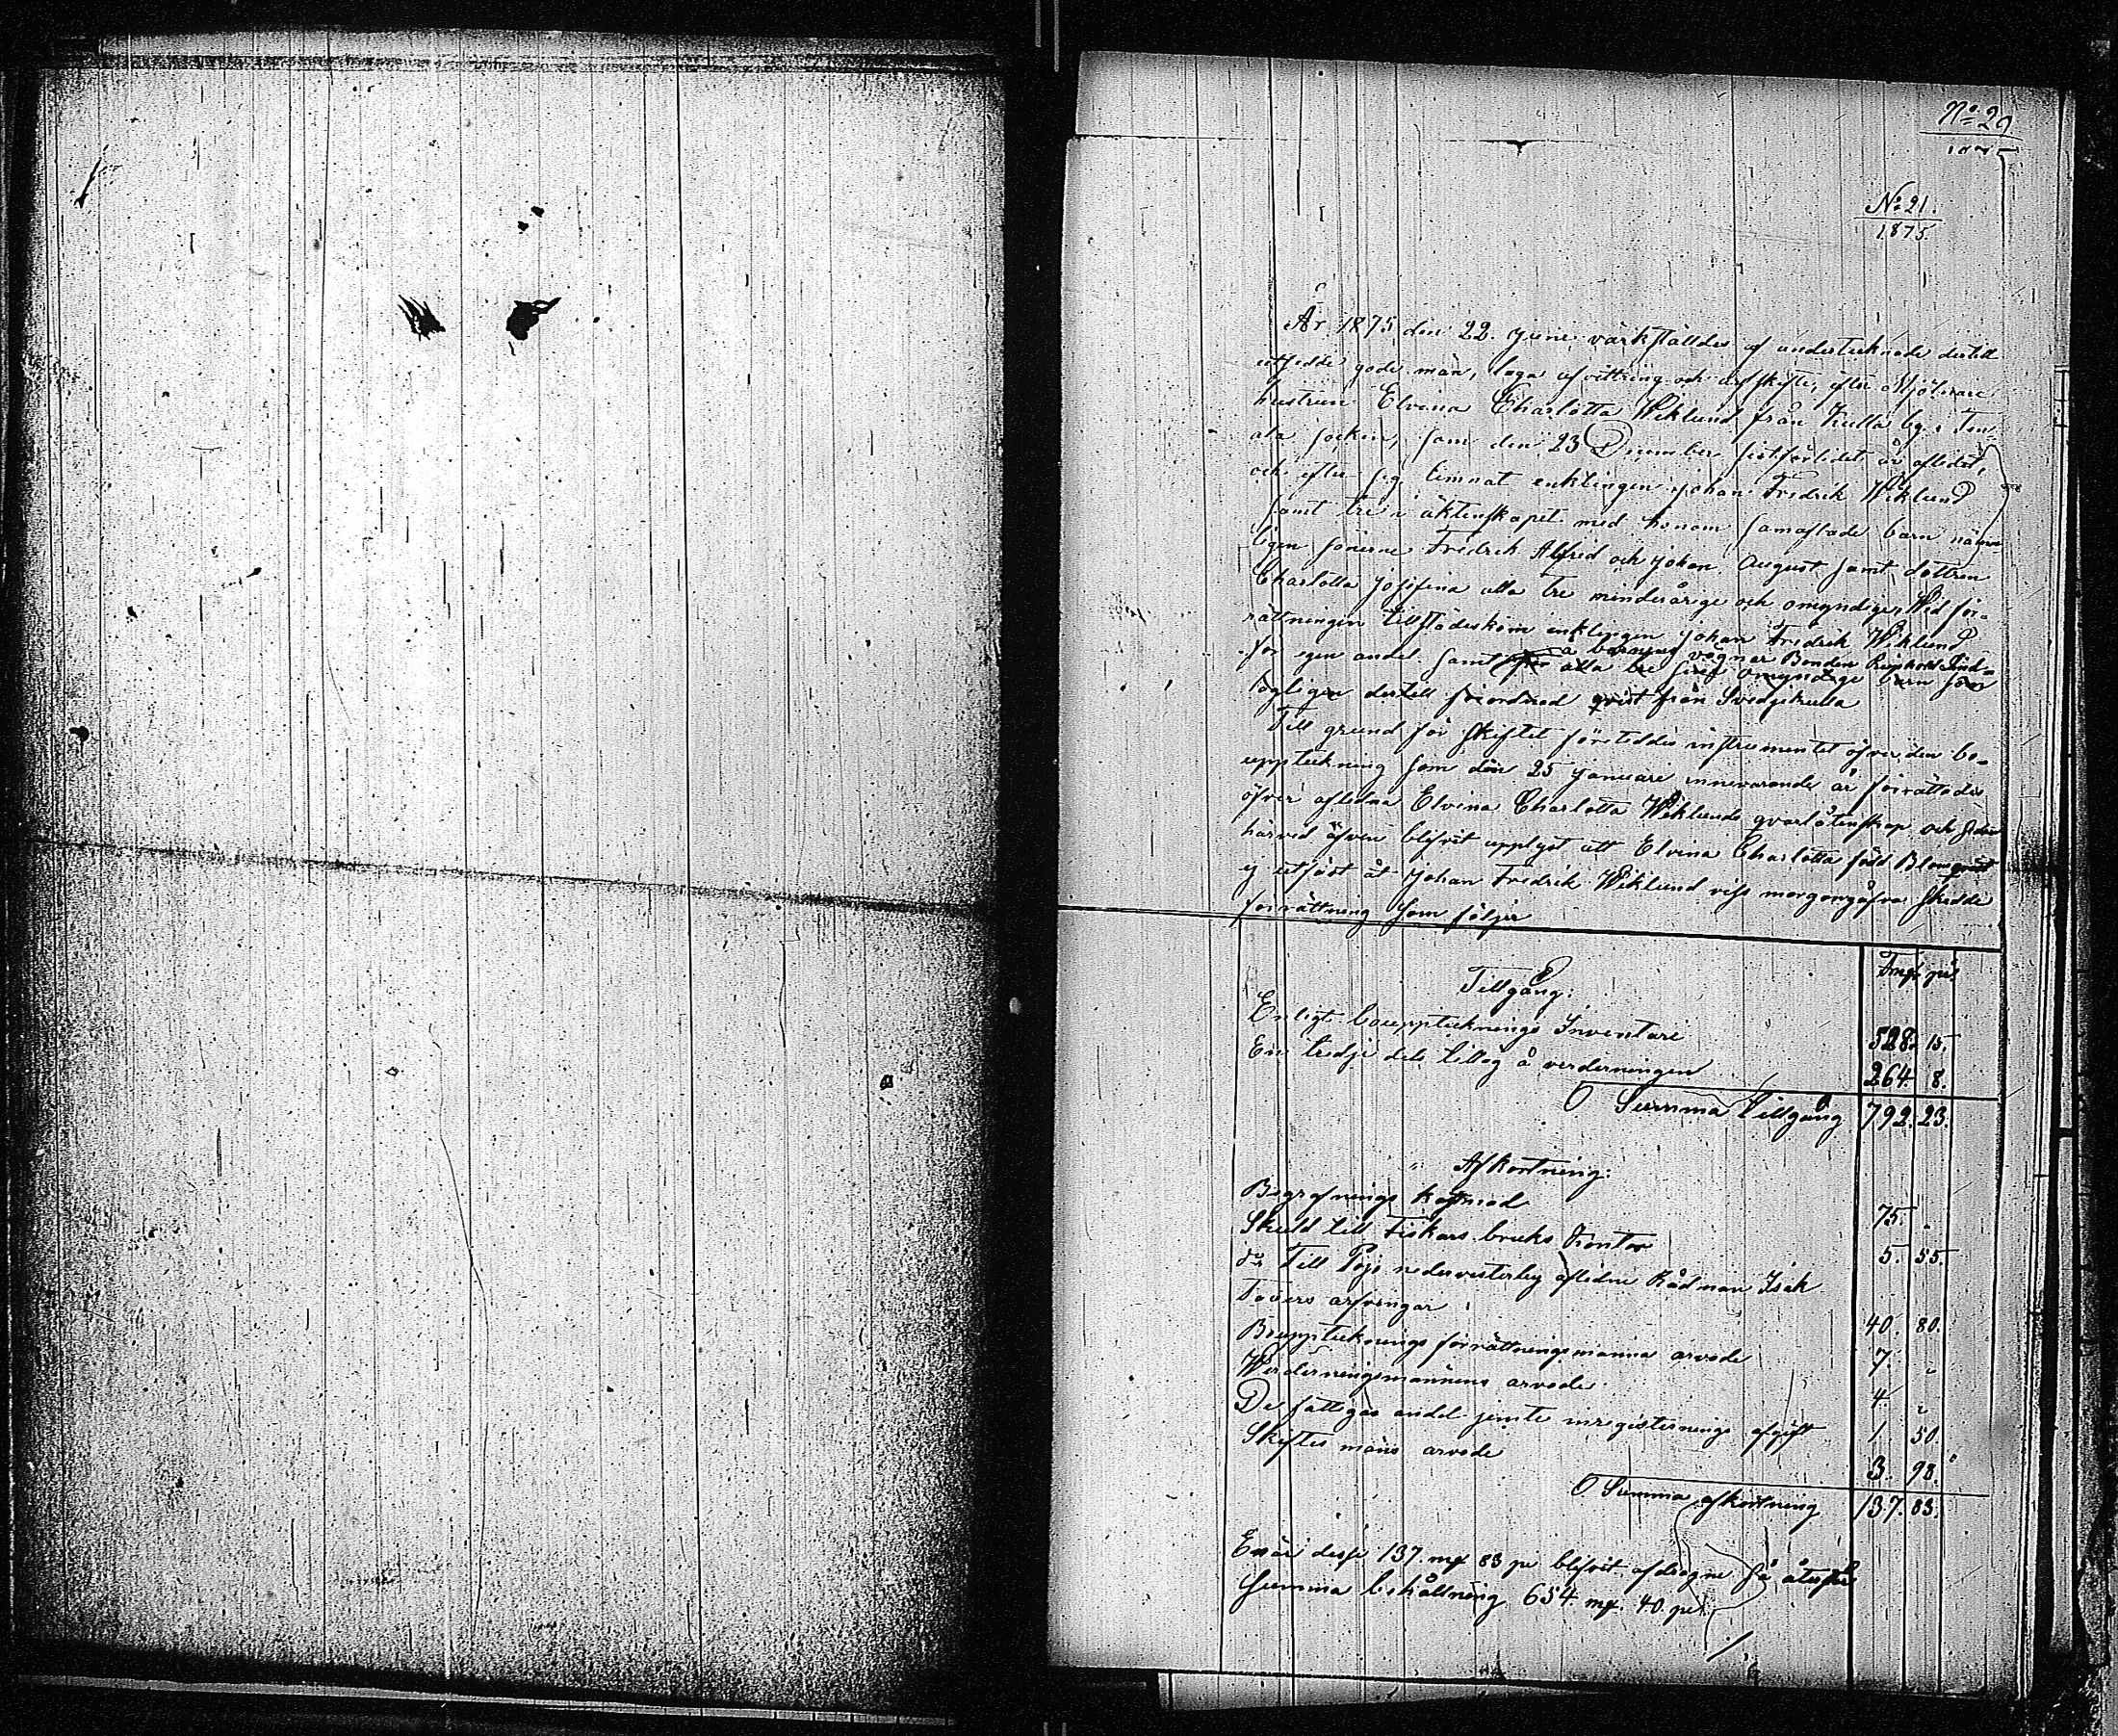 No 29
1875
No 21.
1875.
År 1875 den 22. Juni värkstäldes af undertecknade dertill
utsedde gode män, laga afvittring och arfskifte, efter Mjölnare
hustrun Elvina Charlotta Wiklund från Kulla by i Ten-
ala socken, som den 23 December sistförlidet år aflidit,
och efter sig lemnat enklingen Johan Fredrik Wiklund
samt tre i äktenskapet med honom samaflade barn näm-
ligen sönerne Fredrik Alfrid och Johan August samt dottren
Charlotta Josefina alla tre minderårige och omyndige, Wid för-
rättningen tillstädeskom enklingen Johan Fredrik Wiklund
å barnens vägnar Bonden Reinhold Lind-
för egen andel samt för alla tre sine omyndige barn som
lagligen dertill förordnad qvist från Svedjekulla
Till grund för skiftet företeddes instrumentet öfver den bo-
uppteckning som den 25 Januari innevarande år förrättades
öfver aflidna Elvina Charlotta Wiklunds qvarlåtenskap och sedan
härvid äfven blifvit upplyst att Elvina Charlotta född Blomqvist
ej utfäst åt Johan Fredrik Wiklund viss morgongåfva skedde
förrättning som följer
Fmk pi
Tillgång:
Enligt bouppteknings Inventari 528. 15.
En tredje dels tillög å verderningen 264. 8.
Summa tillgång 792. 23.
Afkortning:
Begrafnings kostnad 75. "
Skuld till Fiskars bruks Kontor 5. 55.
do Till Pojo nedervesterby aflidne Rådman Isak
Tavers arfvingar 40. 80.
Bouppteknings förrättningsmanna arvode 7. "
Werderningsmännens arvode 4. "
De fattigas andel jemte inregistrerings afgift 1. 50.
Skiftes mäns arvode 3. 98.
Summa afkortning 137. 83.
Enär desse 137. mk 83 pi blifvit afdragne så återstår
Summa behållning 654 mk. 40. pi